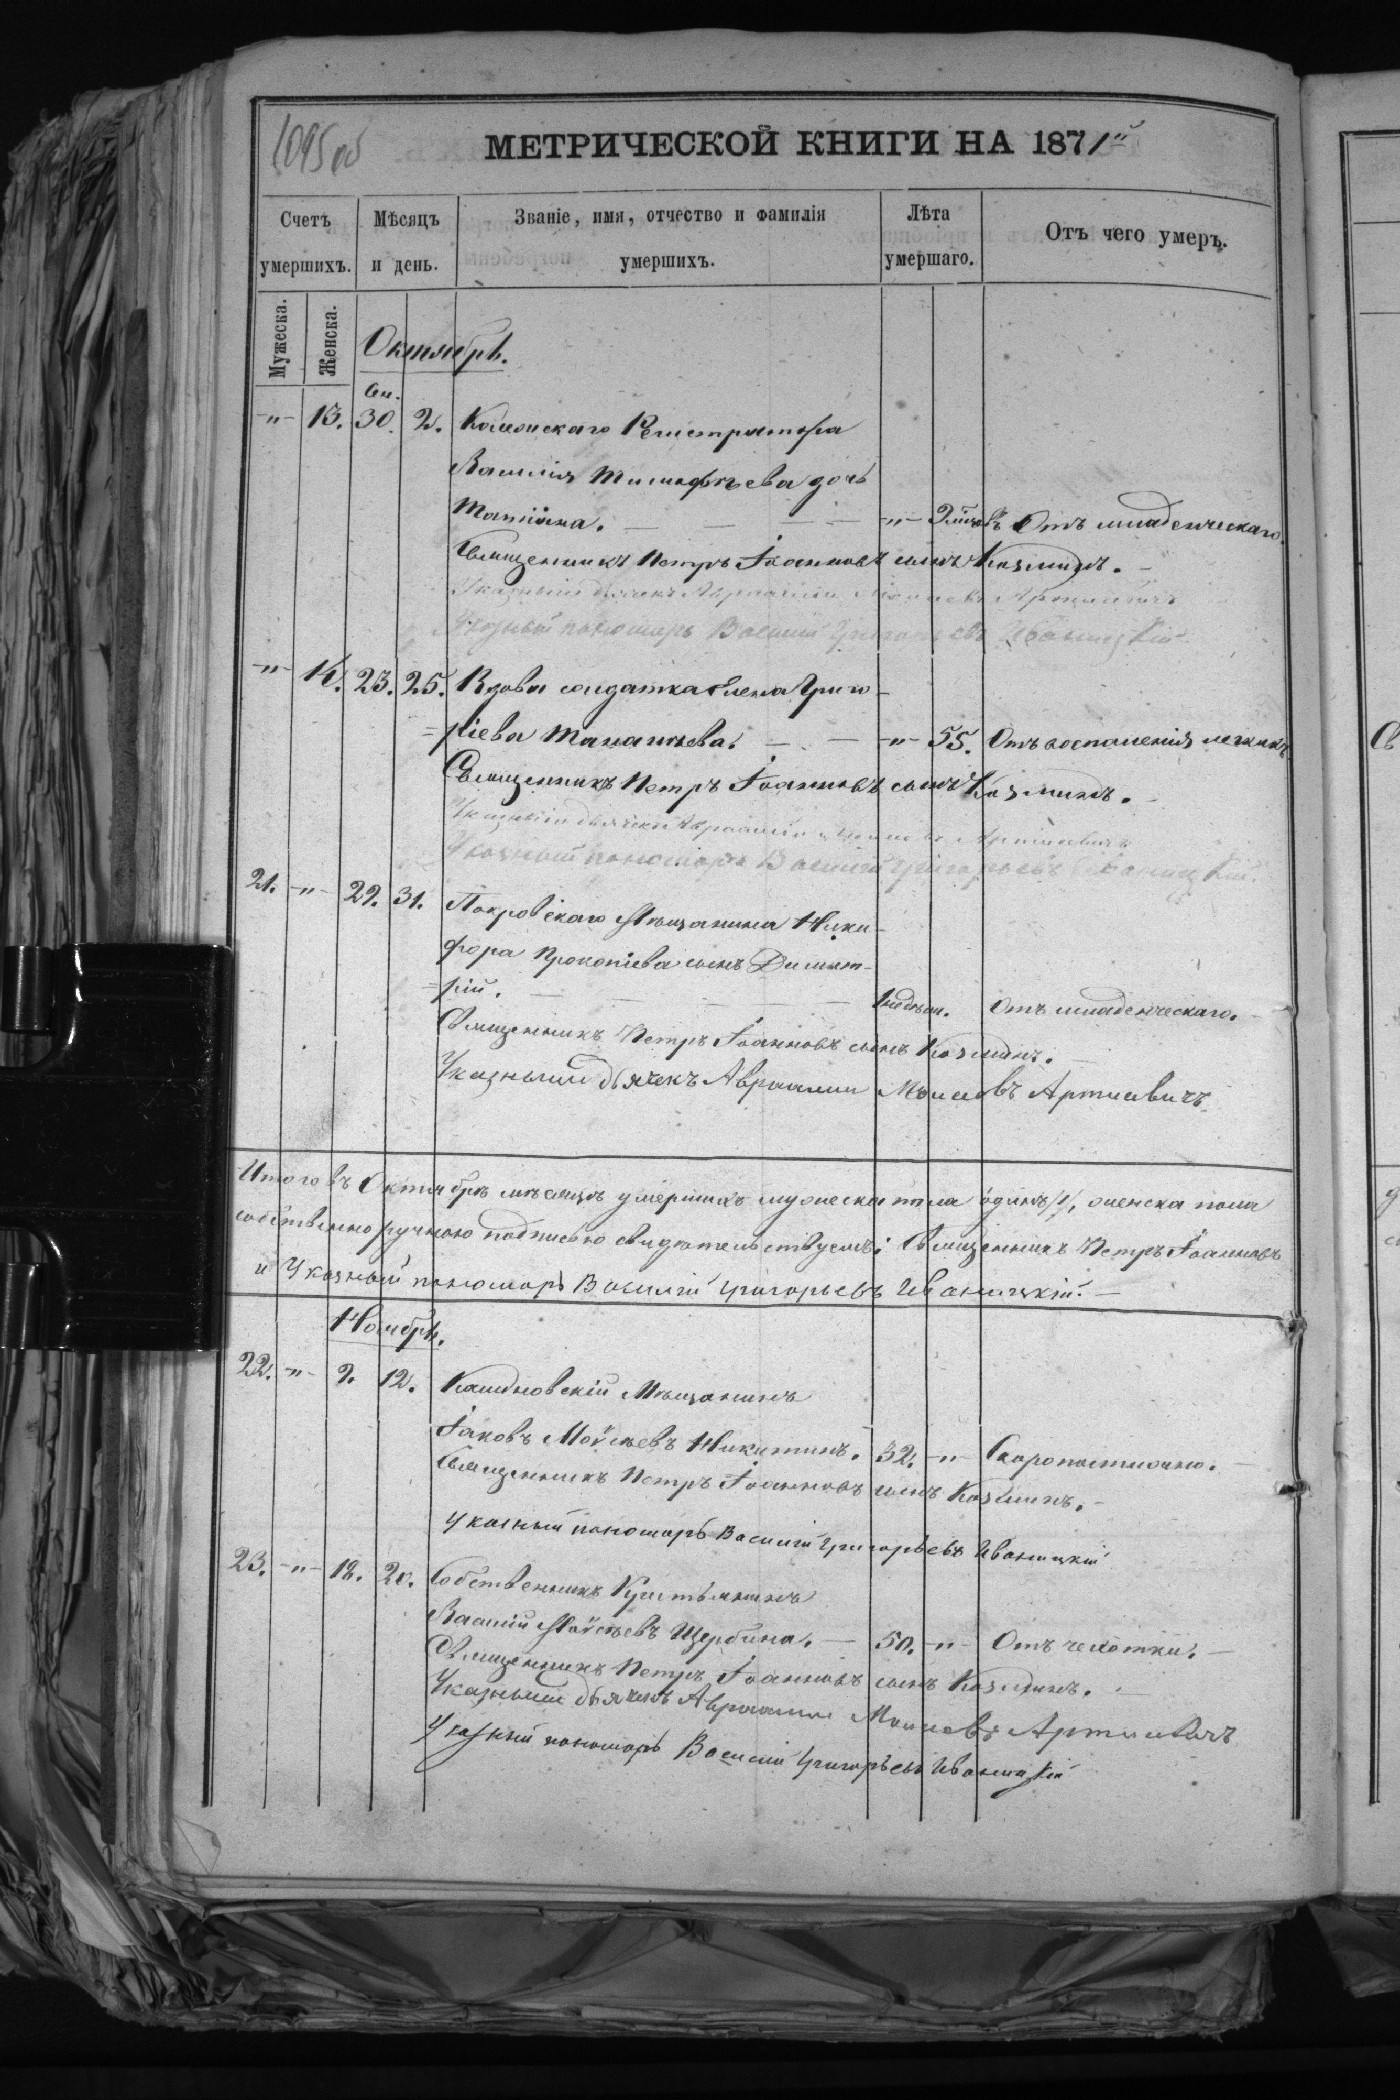 1095 об
МЕТРИЧЕСКОЙ КНИГИ НА 1871й
Счетъ умершихъ.
Мѣсяцъ и день.
Званіе, имя, отчество и фамилія умершихъ.
Лѣта умершаго.
Отъ чего умеръ.
Мужеска.
Женска.
Октябрь.
Сен.
-"- 13. 30. 2. Колежскаго Регистратора
Василія Тимофѣева дочь
Татіана. -"- Отъ младенческаго.
Священникъ Петръ Іоанновъ сынъ Козминъ.
Указный дьячекъ Авраамій Моисеевъ Артисевичъ
Указный пономарь Василій Григорьевъ Иваницкій
-"- 14. 23. 25. Вдова солдатка Елена Григо-
-ріева -"- 55. Отъ воспаленія легкихъ
Священникъ Петръ Іоанновъ сынъ Козминъ.
Указный дьячекъ Авраамій Моисеевъ Артисевичъ
Указный пономарь Василій Григорьевъ Иваницкій.
21. -"- 29. 31. Покровскаго Мѣщанина Ники-
фора Прокопіева сынъ Димит-
-рій. Отъ младенческаго.
Священникъ Петръ Іоанновъ сынъ Козминъ.
Указный дьячекъ Авраамій Моисеевъ Артисевичъ
Итого въ Октябрѣ мѣсяцѣ умершихъ мужеска пола одинъ /1/, женска пола
собственноручною подписью свидѣтельствуемъ: Священникъ Петръ Іоанновъ
и Указный пономарь Василій Григорьевъ Иваницкій.
Ноябрь.
22. -"- 9. 12. Мѣщанинъ
Іаковъ Моѵсеевъ Никитинъ. 32. -"- Скоропостижно.
Священникъ Петръ Іоанновъ сынъ Козминъ.
Указный пономарь Василій Григорьевъ Иваницкій
23. -"- 18. 20. Собственникъ Крестьянинъ
Василій Моѵсеевъ Щербина. 50. -"- Отъ чехотки.
Священникъ Петръ Іоанновъ сынъ Козминъ.
Указный дьячекъ Авраамій Моисеевъ Артисевичъ
Указный пономарь Василій Григорьевъ Иваницкій